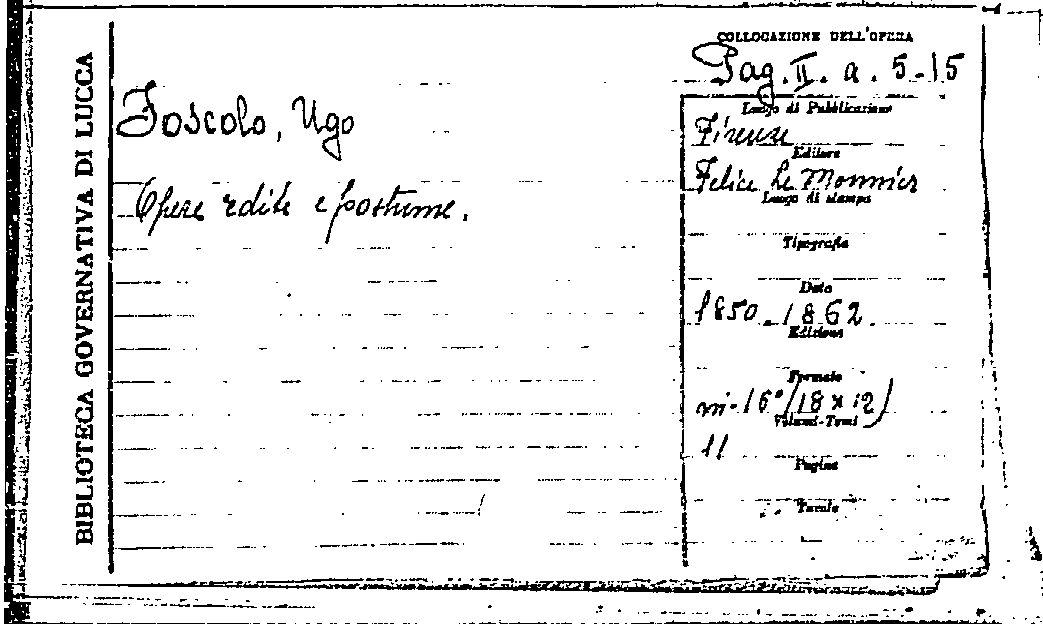 BIBLIOTECA GOVERNATIVA DI LUCCA
Foscolo, Ugo
Opere edite e postume.
COLLOCAZIONE DELL'OPERA
Pag. II. a. 5-15
Luogo di Pubblicazione
Firenze
Editore
Felice Le Monnier
Luogo di stampa
Tipografia
Data
1850-1862
Edizione
Formato
in-16° (18 x 12)
Volumi-Tomi
11
Pagine
Tavole